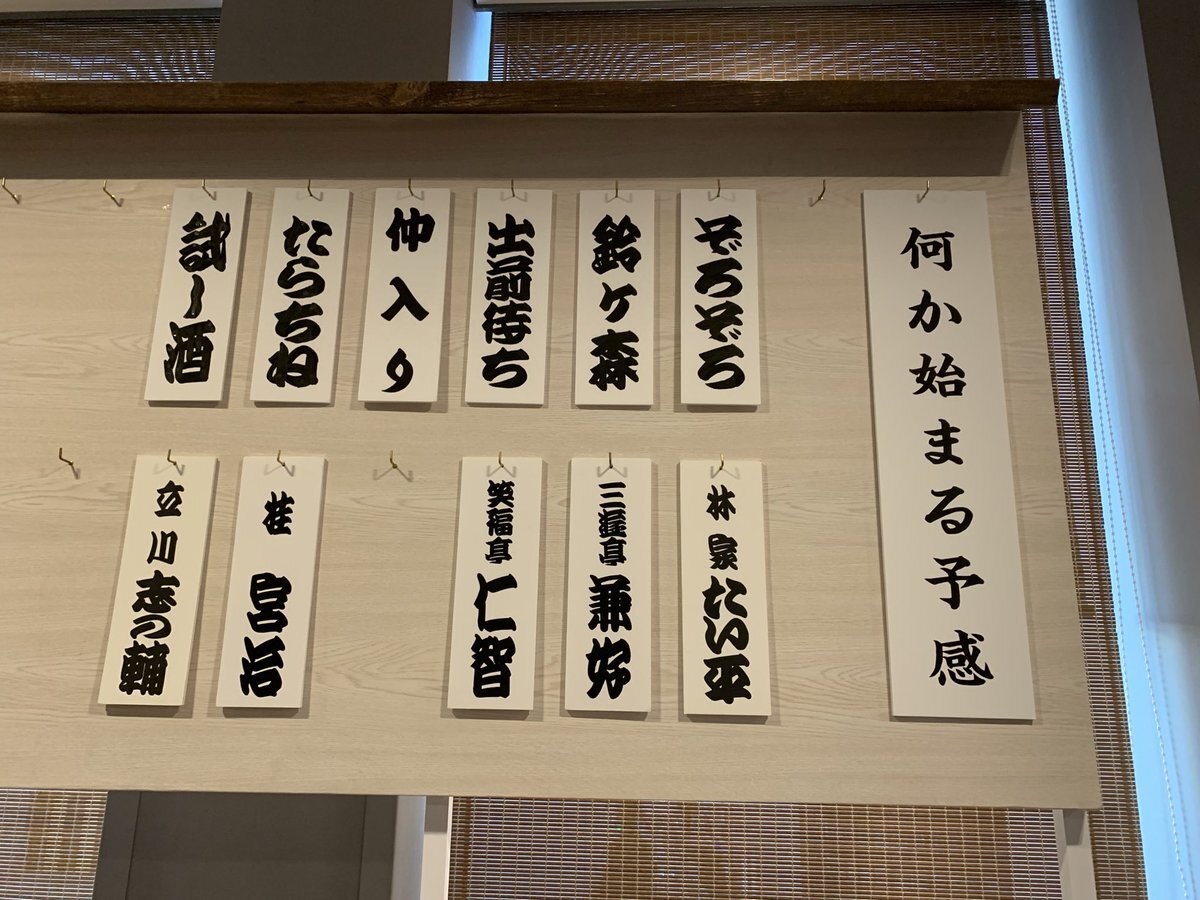 何か始まる予感
ぞろぞろ
鈴ケ森
出前待ち
仲入り
たらちね
試し酒
林家たい平
三遊亭兼好
笑福亭仁智
桂宮治
立川志の輔